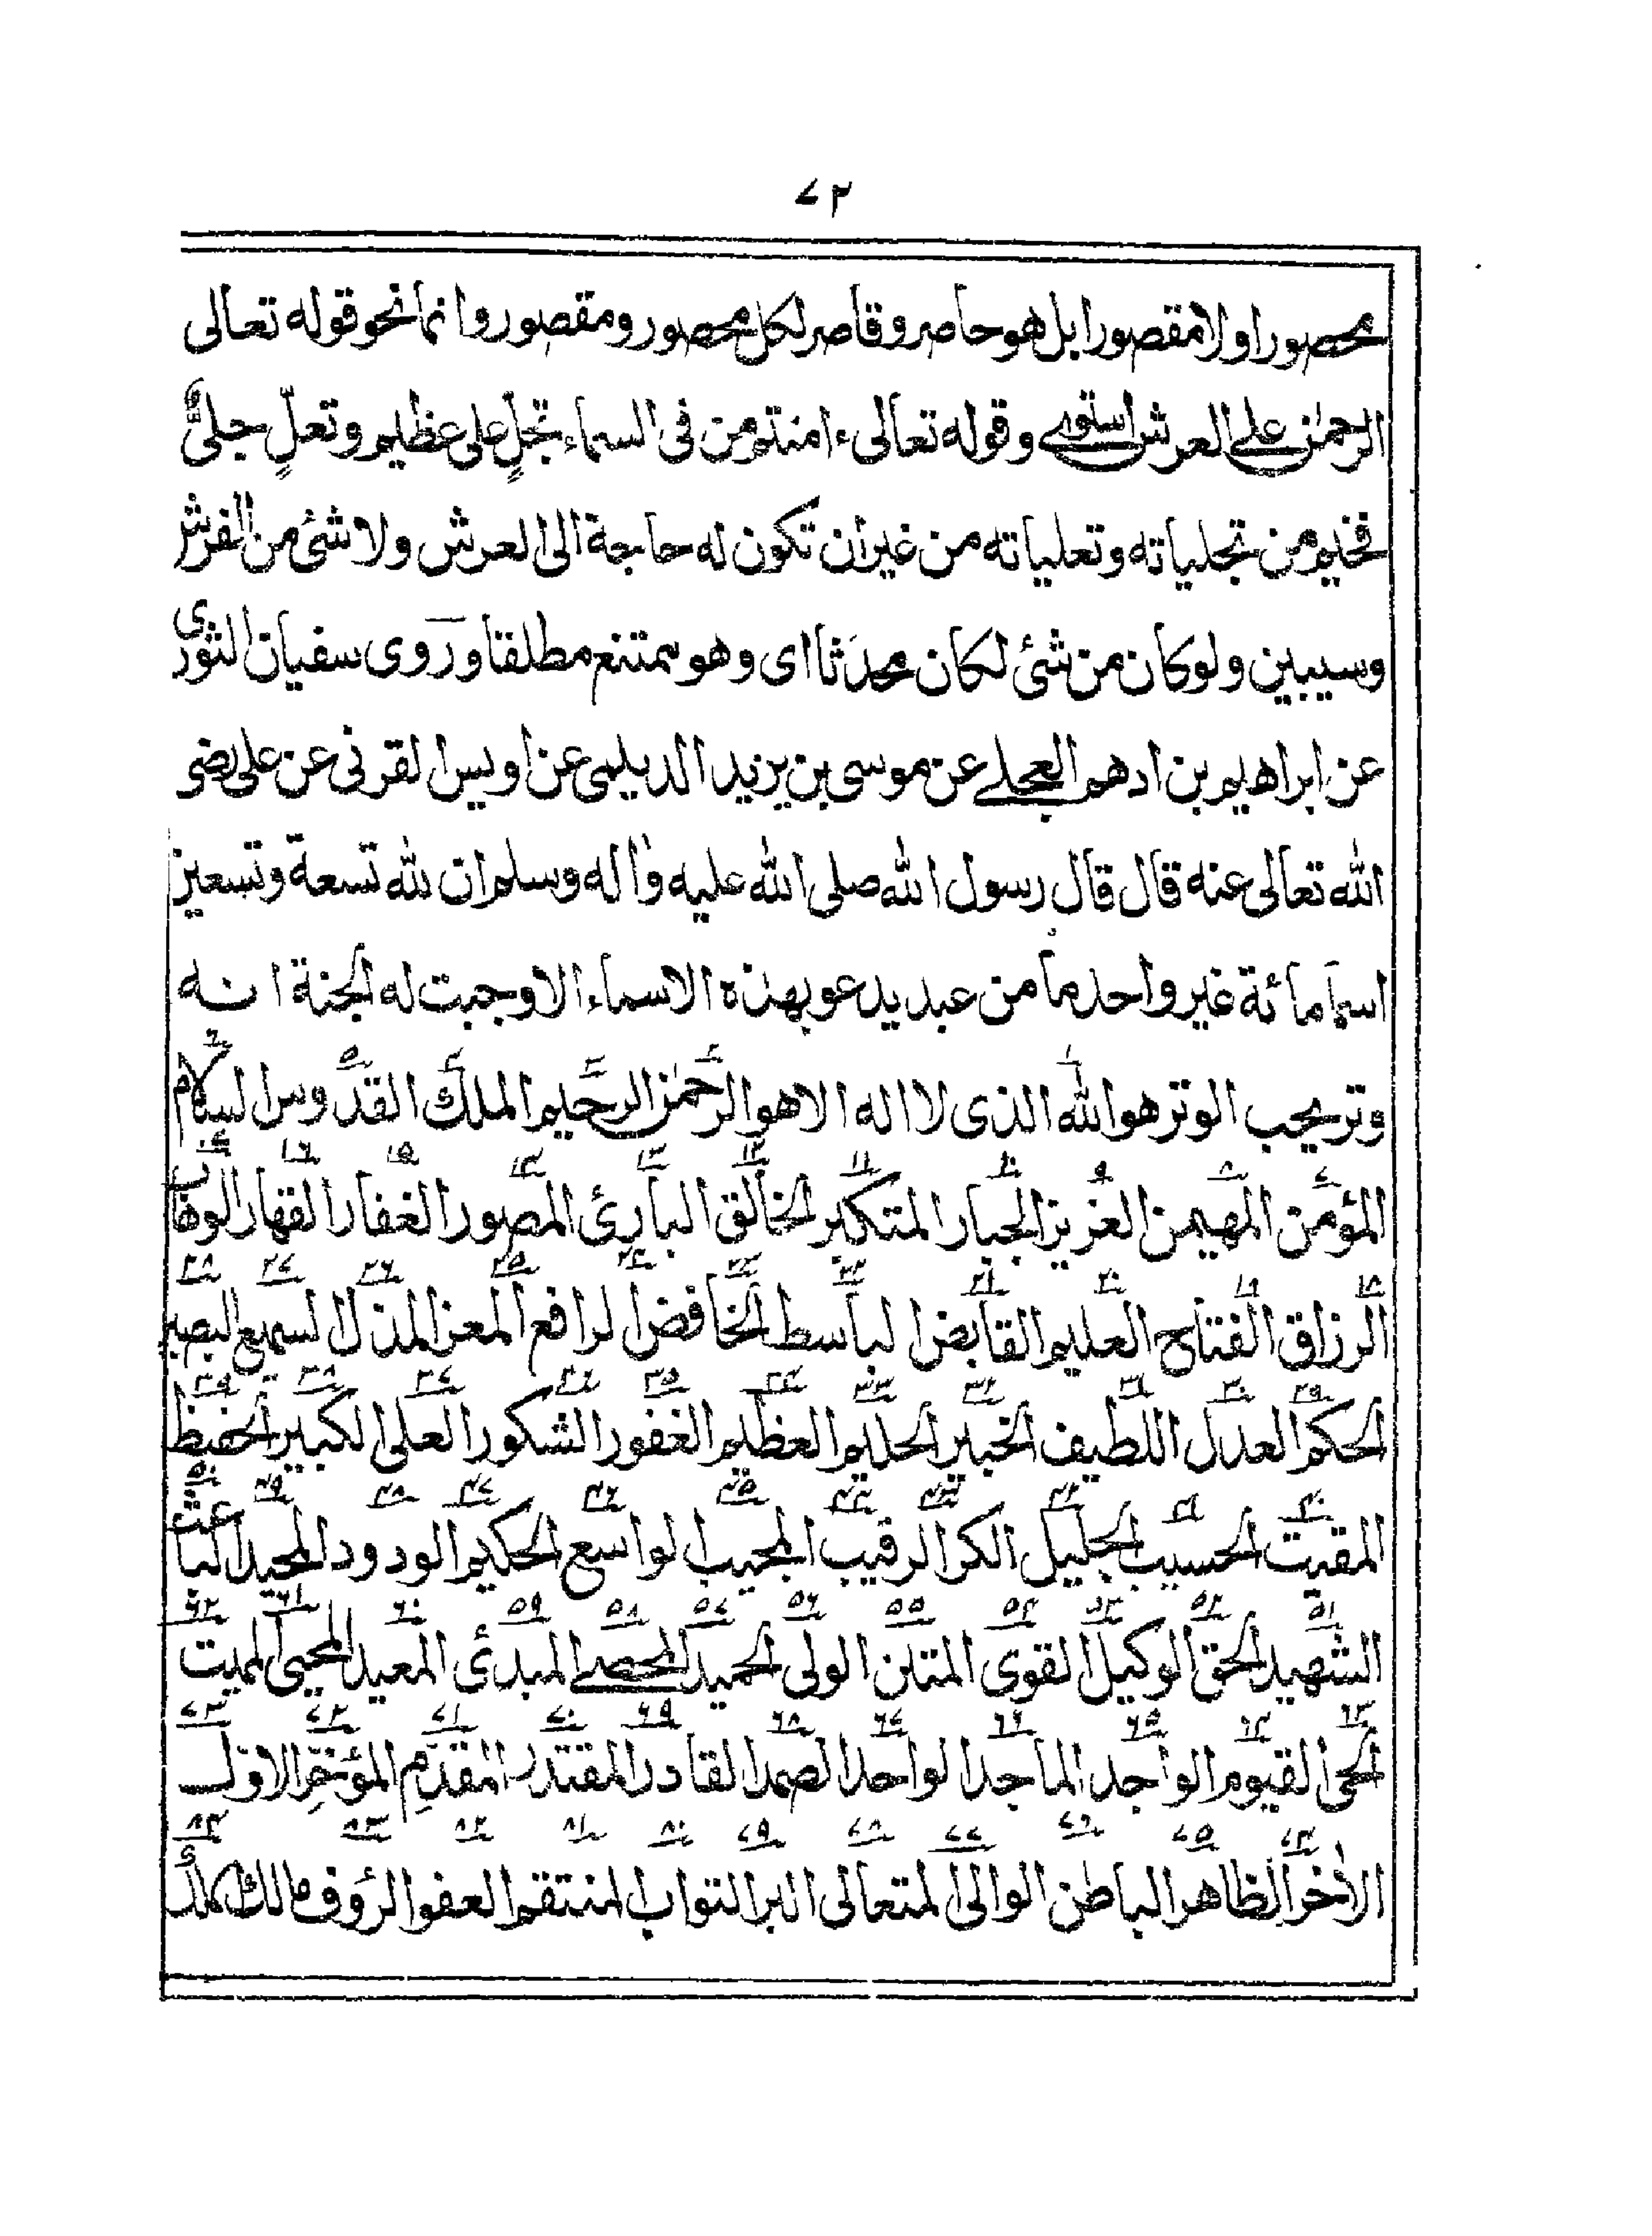 ٧٢
محصورا ولا مقصورا بل هو حاصر وقاصر لكل محصور ومقصور وانما نحو قوله تعالى
الرحمٰن على العرش استوى وقوله تعالى ءامنتم من فى السماء تجلٍّ على عظيم وتعلٍّ جلىّ
فخيم من تجلياته وتعلياته من غير ان تكون له حاجة الى العرش ولا شئ من الفرش
وسيبين ولو كان من شئ لكان محدَثا اى وهو ممتنع مطلقا وروى سفيان الثورى
عن ابراهيم بن ادهم العجلے عن موسى بن يزيد الديلمى عن اويس القرنى عن على رضى
الله تعالى عنه قال قال رسول الله صلى الله عليه واٰله وسلم ان لله تسعة وتسعين
اسما مائة غير واحد ما من عبد يدعو بهذه الاسماء الا وجبت له الجنة انه
وتر يحب الوتر هو الله الذى لا اله الا هو الرحمٰن الرحيم الملك القدّوس السلام
المؤمن المهيمن العزيز الجبار المتكبر الخالق البارئ المصور الغفار القهار الوهاب
الرزاق الفتاح العليم القابض الباسط الخافض الرافع المعز المذل السميع البصير
الحكم العدل اللطيف الخبير الحليم العظيم الغفور الشكور العلى الكبير الحفيظ
المقيت الحسيب الجليل الكر الرقيب المجيب الواسع الحكيم الودود المجيد الباعث
الشهيد الحق الوكيل القوى المتين الولى الحميد المحصے المبدئ المعيد المحيى المميت
الحى القيوم الواجد الماجد الواحد الصمد القادر المقتدر المقدِّم المؤخِّر الاوّل
الاٰخر الظاهر الباطن الوالى المتعالى البر التواب المنتقم العفو الرؤف مالك